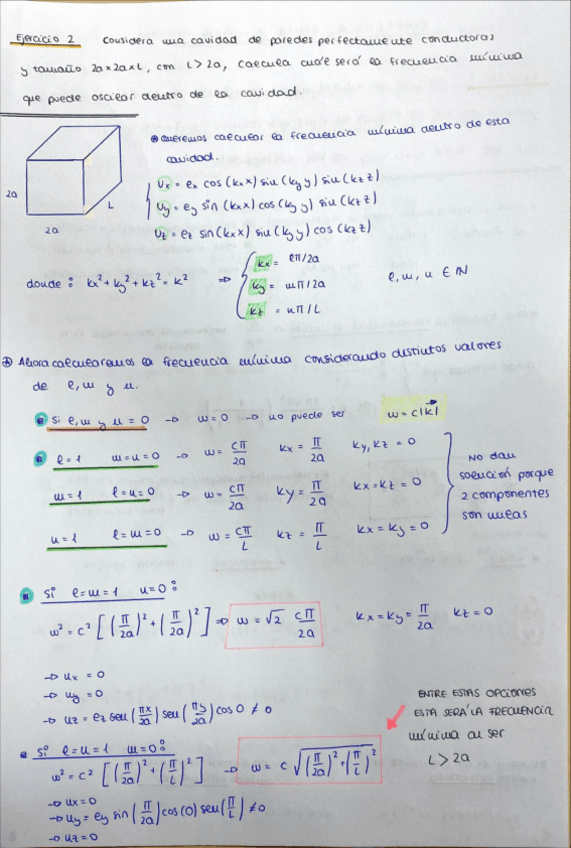 Ejercicio 2 Considera una cavidad de paredes perfectamente conductoras
y tamaño 2a x 2a x L, con L > 2a, calcula cuál será la frecuencia mínima
que puede oscilar dentro de la cavidad.
⊛ Queremos calcular la frecuencia mínima dentro de esta
cavidad.
2a
2a
L
Ux = ex cos (kx x) sin (ky y) sin (kz z)
Uy = ey sin (kx x) cos (ky y) sin (kz z)
Uz = ez sin (kx x) sin (ky y) cos (kz z)
donde : kx² + ky² + kz² = k² ⇒
kx = lπ/2a
ky = mπ/2a
kz = nπ/L
l, m, n ∈ ℕ
⊛ Ahora calcularemos la frecuencia mínima considerando distintos valores
de l, m y n.
Si l, m y n = 0 → w = 0 → no puede ser w = c|k⃗|
l = 1 m = n = 0 → w = cπ/2a kx = π/2a ky, kz = 0
m = 1 l = n = 0 → w = cπ/2a ky = π/2a kx = kz = 0
n = 1 l = m = 0 → w = cπ/L kz = π/L kx = ky = 0
No dan
solución porque
2 componentes
son nulas
Si l = m = 1 n = 0 :
w² = c² [(π/2a)² + (π/2a)²] ⇒ w = √2 cπ/2a kx = ky = π/2a kz = 0
→ Ux = 0
→ Uy = 0
→ Uz = ez sen (πx/2a) sen (πy/2a) cos 0 ≠ 0
ENTRE ESTAS OPCIONES
ESTA SERÁ LA FRECUENCIA
mínima al ser
L > 2a
Si l = n = 1 m = 0 :
w² = c² [(π/2a)² + (π/L)²] → w = c √(π/2a)² + (π/L)²
→ Ux = 0
→ Uy = ey sin (π/2a) cos (0) sen (π/L) ≠ 0
→ Uz = 0